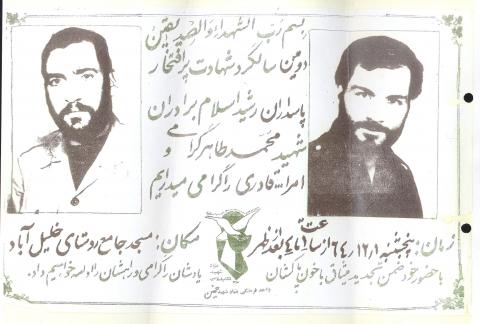 بسم رب الشهداء والصدیقین
دومین سالگرد شهادت پرافتخار
پاسداران رشید اسلام برادران
شهید محمد طاهر گرامی و
امرالله قادری را گرامی میداریم
زمان: پنجشنبه ۶۴/۱۲/۱ از ساعت ۲ تا ۴ بعدازظهر
مکان: مسجد جامع روستای خلیل آباد
با حضور خود ضمن تجدید میثاق با خون پاکشان
یادشان را گرامی و راهشان را ادامه خواهیم داد.
واحد فرهنگی بنیاد شهید خمین